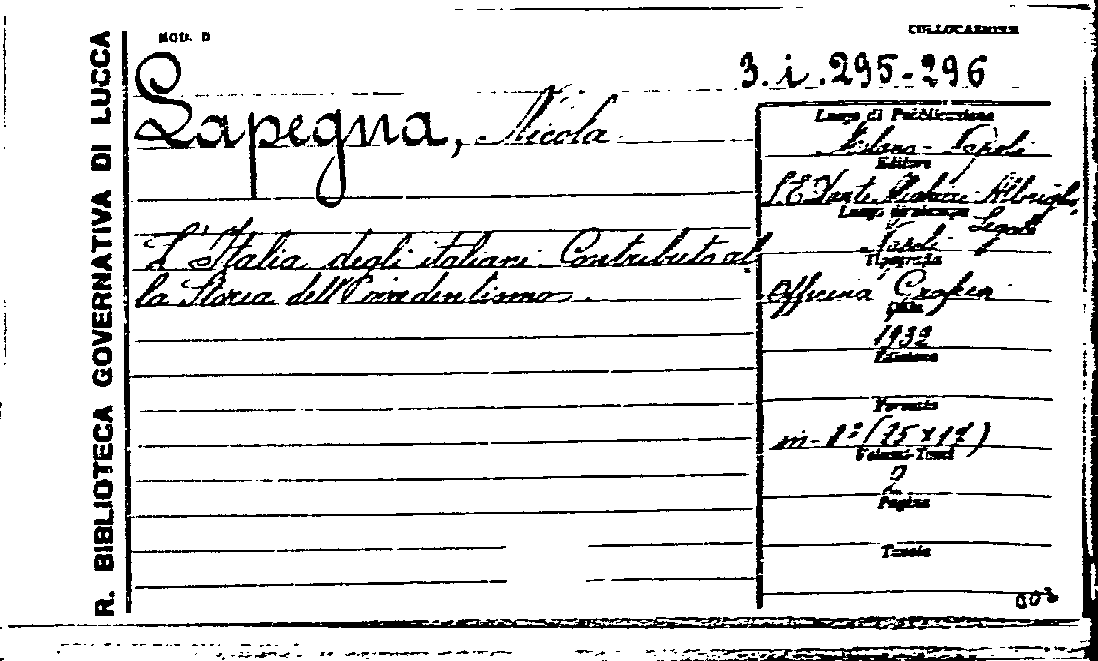 R. BIBLIOTECA GOVERNATIVA DI LUCCA
MOD. B
COLLOCAZIONE
3. i. 295-296
Lapegna, Nicola
L'Italia degli italiani. Contributo al
la Storia dell'Irredentismo.
Luogo di Pubblicazione
Milano - Napoli
Editore
S. E. Dante Alighieri Albrighi,
Segati
Luogo di stampa
Napoli
Tipografia
Officina Grafica
Data
1932
Edizione
Formato
in-8° (25x17)
Volumi-Tomi
2
Pagine
Tavole